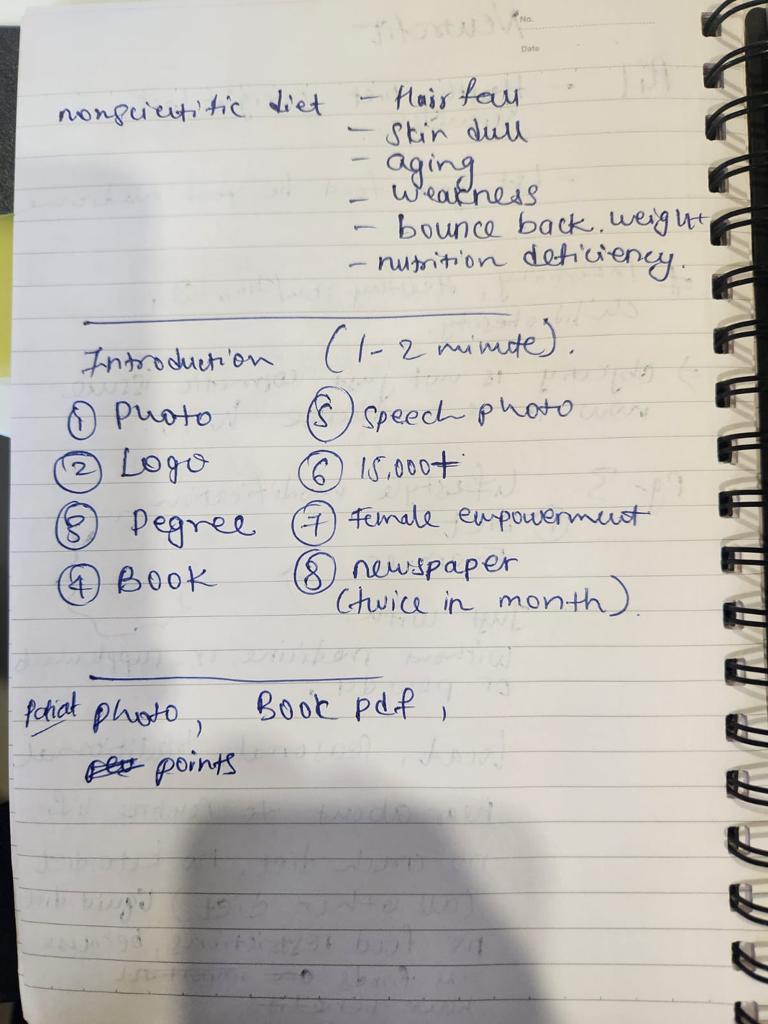 No.
Date
nonscientific diet - Hair fall
- Skin dull
- aging
- weakness
- bounce back. weight
- nutrition deficiency.
Introduction (1-2 minute).
① Photo ⑤ speech photo
② Logo ⑥ 15,000+
③ Degree ⑦ Female empowerment
④ BOOK ⑧ newspaper
(twice in month)
photo, Book pdf,
points